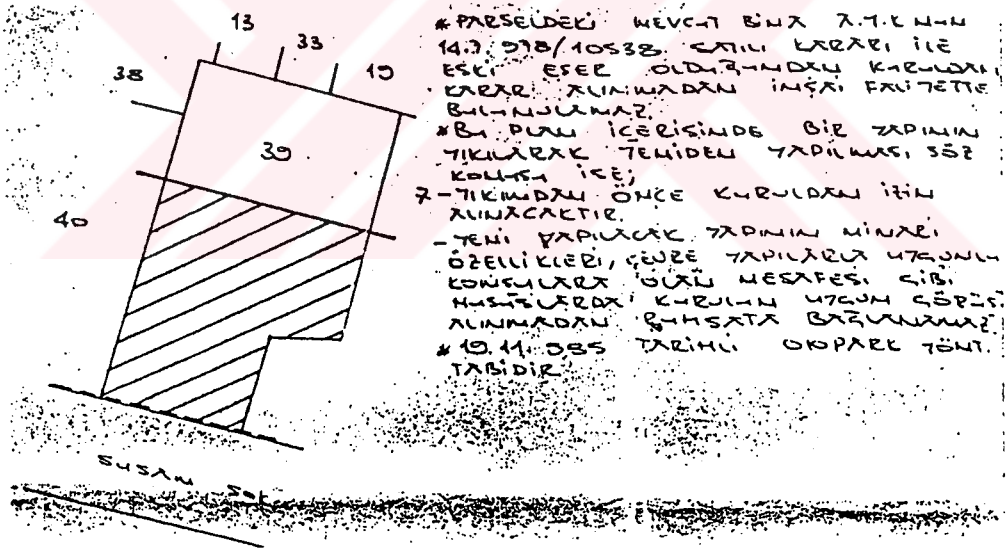 13
33
19
38
39
40
* PARSELDEKİ MEVCUT BİNA A.Y.K NUN
14.7.978/10538 SAYILI KARARI İLE
ESKİ ESER OLDUĞUNDAN KURULDAN
KARARI ALINMADAN İNŞAİ FALİYETTE
BULUNULAMAZ.
* BU PLAN İÇERİSİNDE BİR YAPININ
YIKILARAK YENİDEN YAPILMASI SÖZ
KONUSU İSE;
- YIKIMDAN ÖNCE KURULDAN İZİN
ALINACAKTIR.
- YENİ YAPILACAK YAPININ MİMARİ
ÖZELLİKLERİ, ÇEVRE YAPILARLA UYGUNLU
KOMŞULARA OLAN MESAFESİ GİBİ
HUSUSLARDA KURULUN UYGUN GÖRÜŞÜ
ALINMADAN RUHSATA BAĞLANAMAZ.
* 19.11.985 TARİHLİ OTOPARK YÖNT.
TABİDİR
SUSAM SOK.